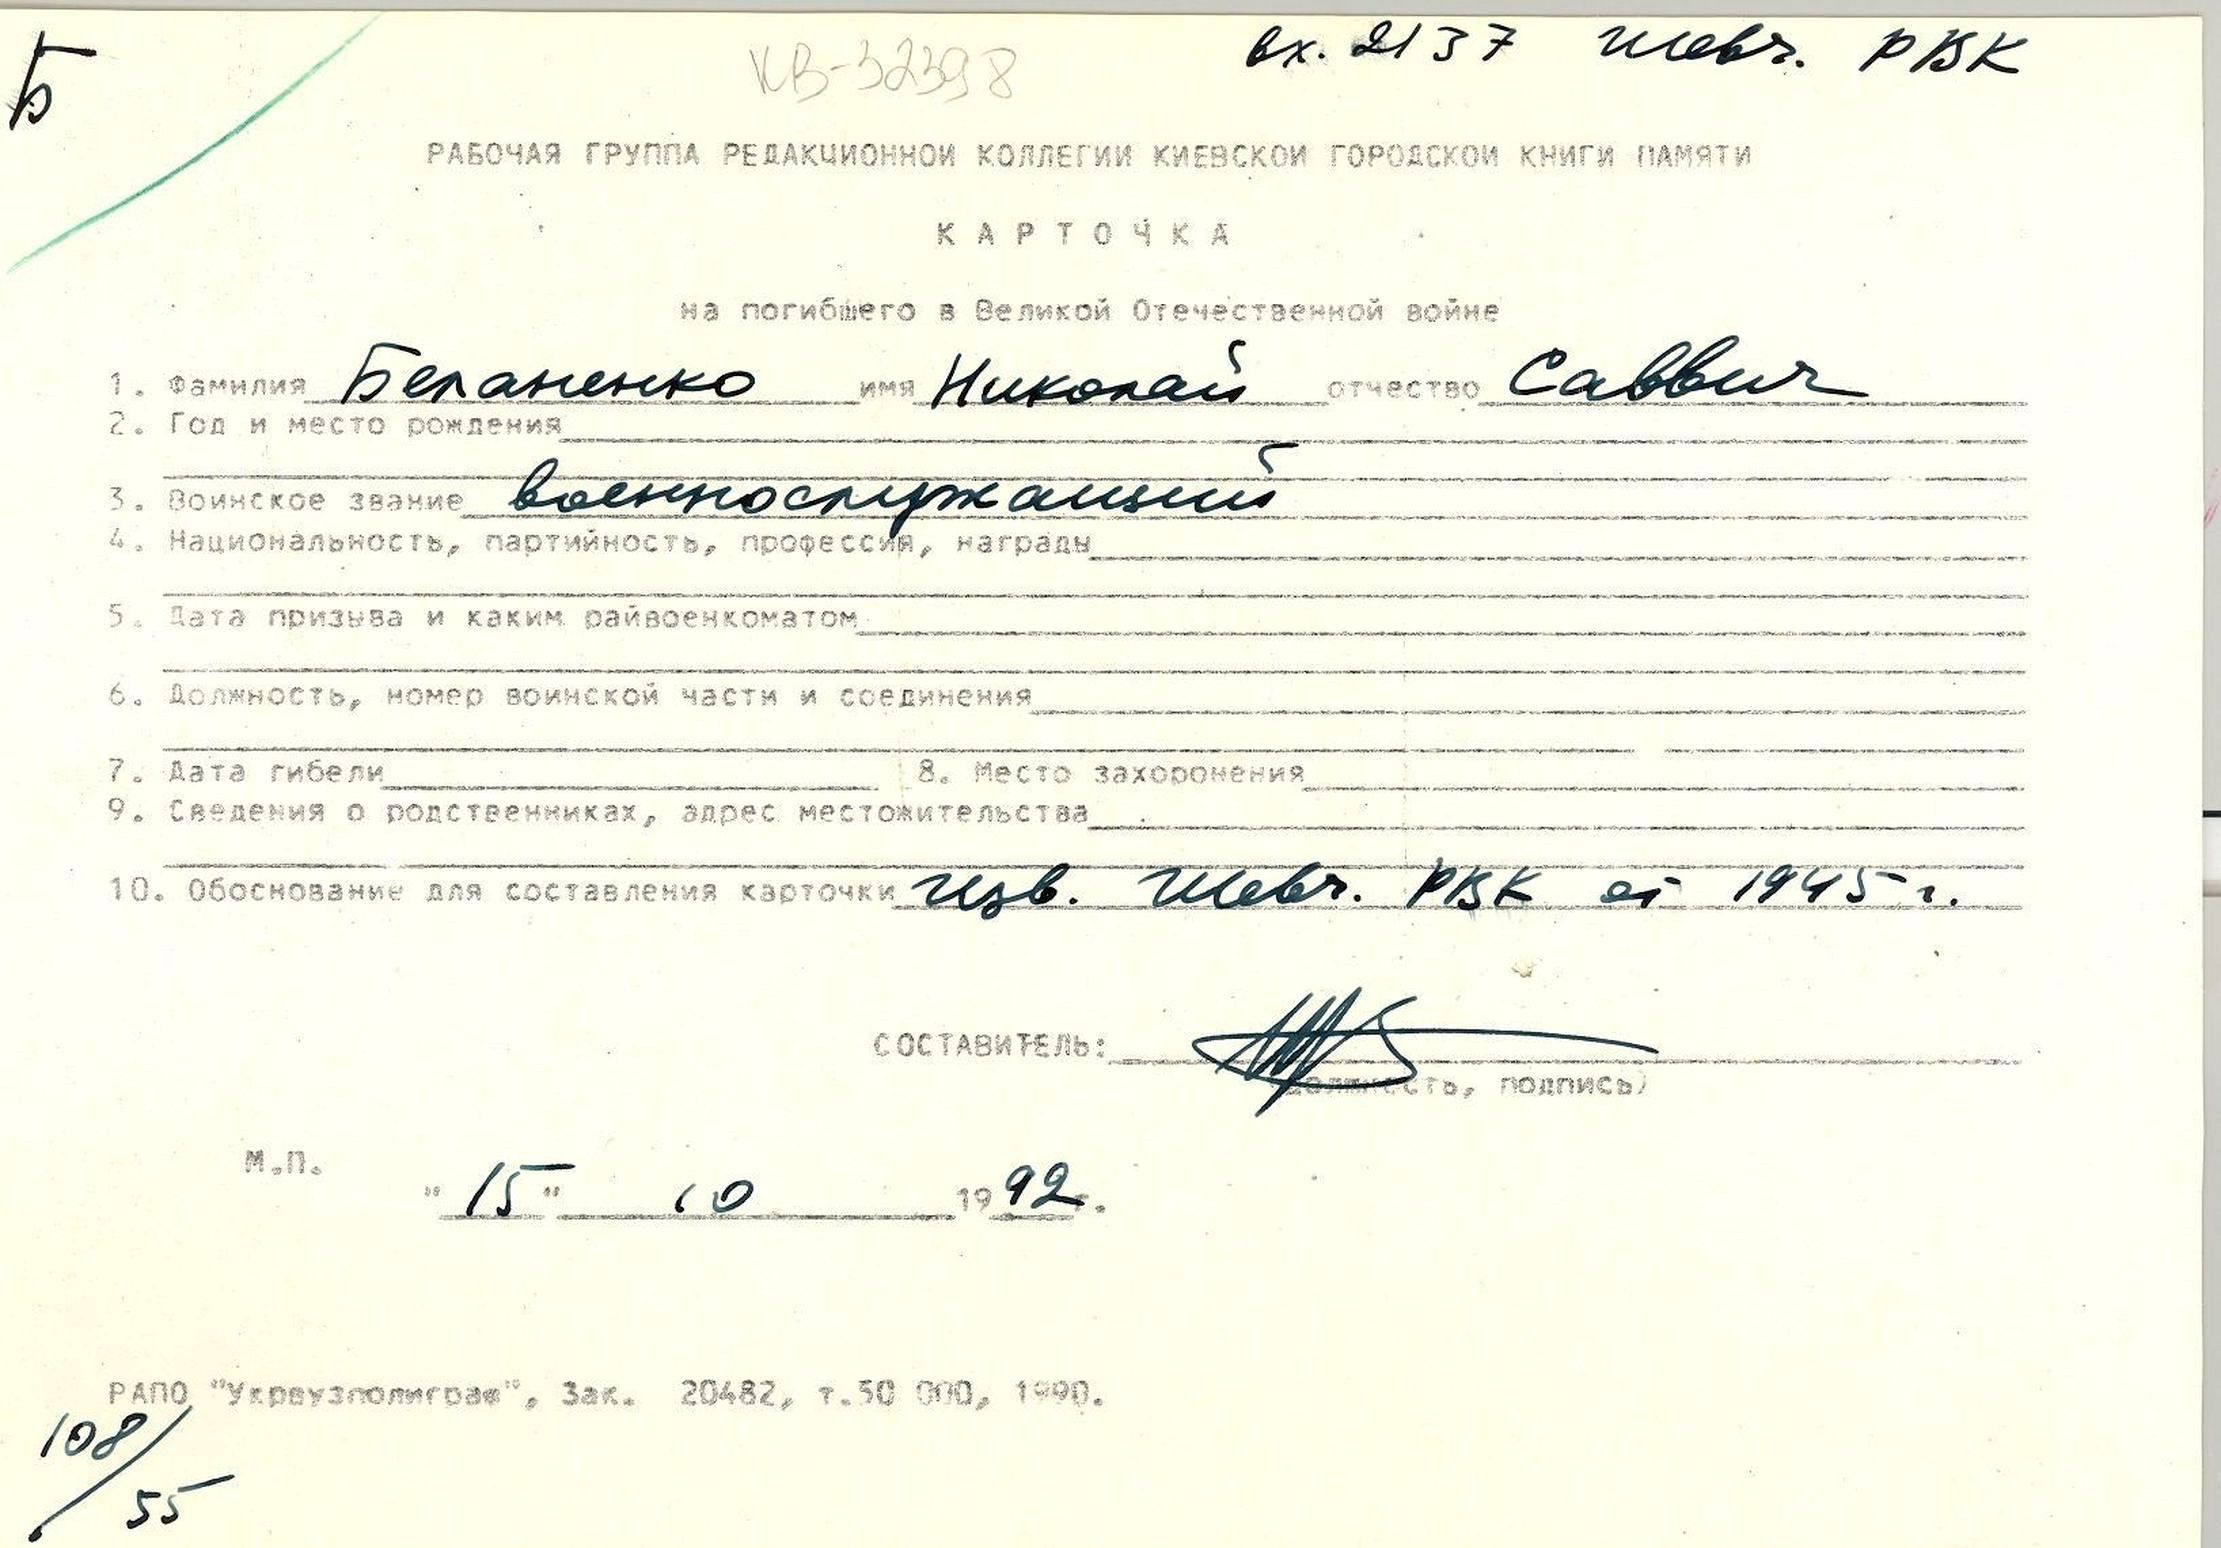 Б
КВ-32398
вх. 2137 Шевч. РВК
РАБОЧАЯ ГРУППА РЕДАКЦИОННОЙ КОЛЛЕГИИ КИЕВСКОЙ ГОРОДСКОЙ КНИГИ ПАМЯТИ
К А Р Т О Ч К А
на погибшего в Великой Отечественной войне
1. Фамилия Беланенко имя Николай отчество Саввич
2. Год и место рождения
3. Воинское звание военнослужащий
4. Национальность, партийность, профессия, награды
5. Дата призыва и каким райвоенкоматом
6. Должность, номер воинской части и соединения
7. Дата гибели 8. Место захоронения
9. Сведения о родственниках, адрес местожительства
10. Обоснование для составления карточки изв. Шевч. РВК от 1945 г.
СОСТАВИТЕЛЬ:
(должность, подпись)
М.П.
"15" 10 1992 г.
РАПО "Укрвузполиграф", Зак. 20482, т.50 000, 1990.
108/55